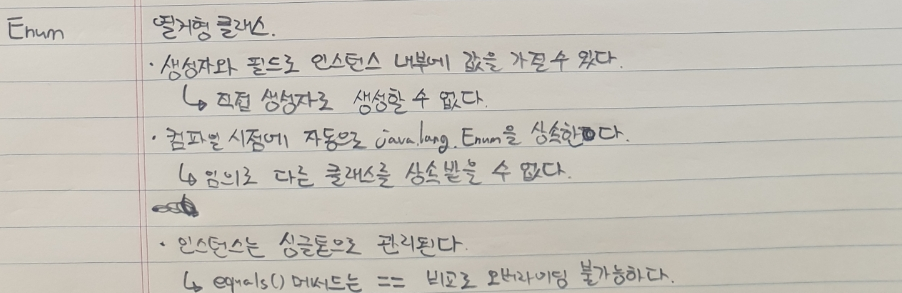 Enum 열거형 클래스.
· 생성자와 필드로 인스턴스 내부에 값을 가질 수 있다.
↳ 직접 생성자로 생성할 수 없다.
· 컴파일 시점에 자동으로 java.lang.Enum을 상속한다.
↳ 임의로 다른 클래스를 상속받을 수 없다.
· 인스턴스는 싱글톤으로 관리된다.
↳ equals() 메서드는 == 비교로 오버라이딩 불가능하다.